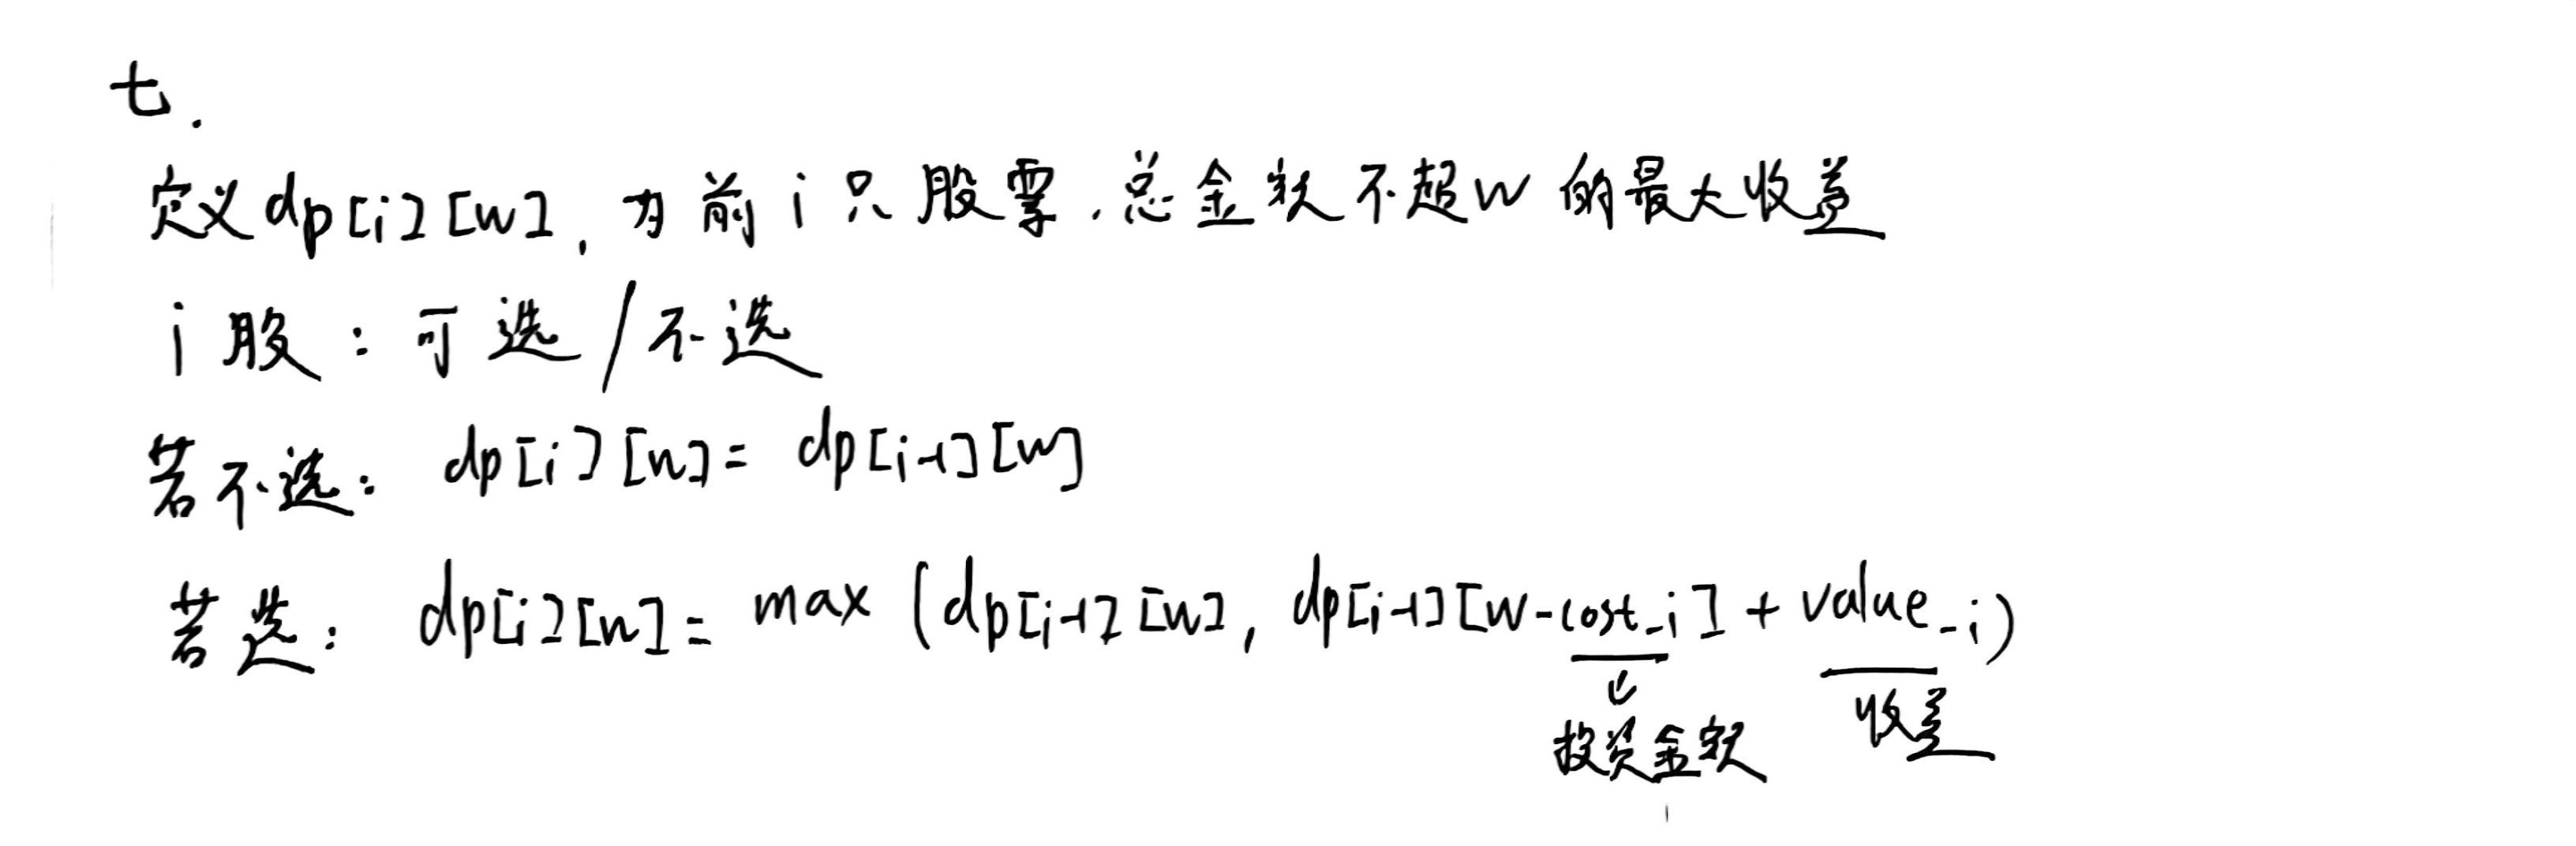 七.
定义dp[i][w], 为前i只股票,总金额不超w的最大收益
i股: 可选/不选
若不选: dp[i][w]= dp[i-1][w]
若选: dp[i][w]= max (dp[i-1][w], dp[i-1][w-cost_i] + value_i)
↓
投资金额 收益